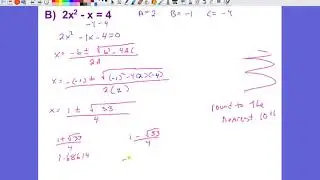 B) 2x² - x = 4   A = 2   B = -1   C = -4
-4 -4
2x² - 1x - 4 = 0
x = -b ± √b² - 4AC / 2A
x = -(-1) ± √(-1)² - 4(2)(-4) / 2(2)
x = 1 ± √33 / 4
round to the
nearest 10th
1 + √33 / 4   1 - √33 / 4
1.68614